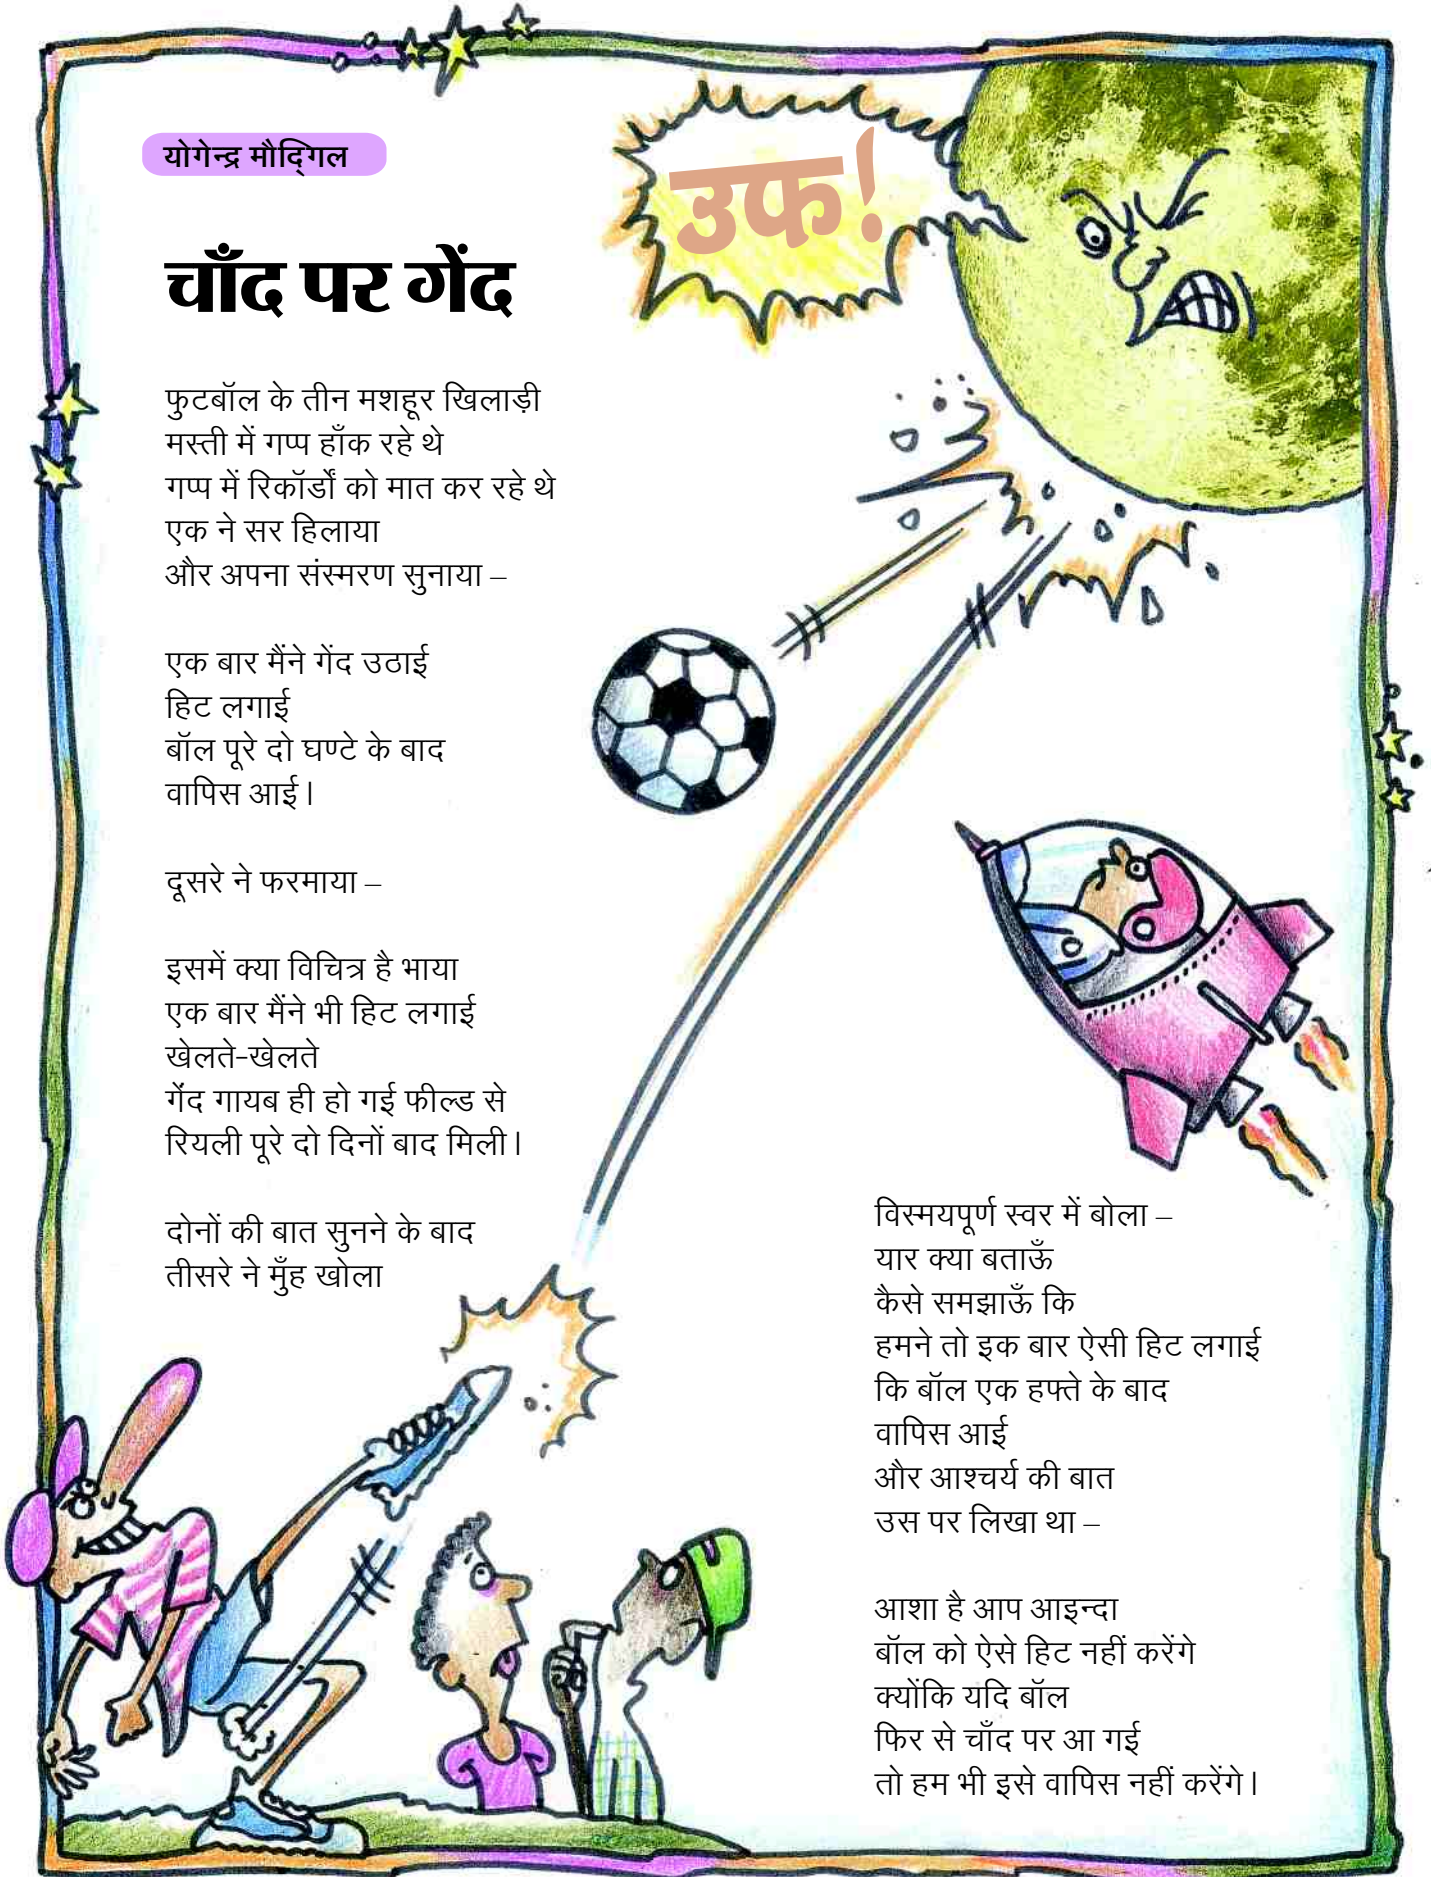 योगेन्द्र मौद्गिल
उफ!
चाँद पर गेंद
फुटबॉल के तीन मशहूर खिलाड़ी
मस्ती में गप्प हाँक रहे थे
गप्प में रिकॉर्डों को मात कर रहे थे
एक ने सर हिलाया
और अपना संस्मरण सुनाया –
एक बार मैंने गेंद उठाई
हिट लगाई
बॉल पूरे दो घण्टे के बाद
वापिस आई।
दूसरे ने फरमाया –
इसमें क्या विचित्र है भाया
एक बार मैंने भी हिट लगाई
खेलते-खेलते
गेंद गायब ही हो गई फील्ड से
रियली पूरे दो दिनों बाद मिली।
दोनों की बात सुनने के बाद
तीसरे ने मुँह खोला
विस्मयपूर्ण स्वर में बोला –
यार क्या बताऊँ
कैसे समझाऊँ कि
हमने तो इक बार ऐसी हिट लगाई
कि बॉल एक हफ्ते के बाद
वापिस आई
और आश्चर्य की बात
उस पर लिखा था –
आशा है आप आइन्दा
बॉल को ऐसे हिट नहीं करेंगे
क्योंकि यदि बॉल
फिर से चाँद पर आ गई
तो हम भी इसे वापिस नहीं करेंगे।